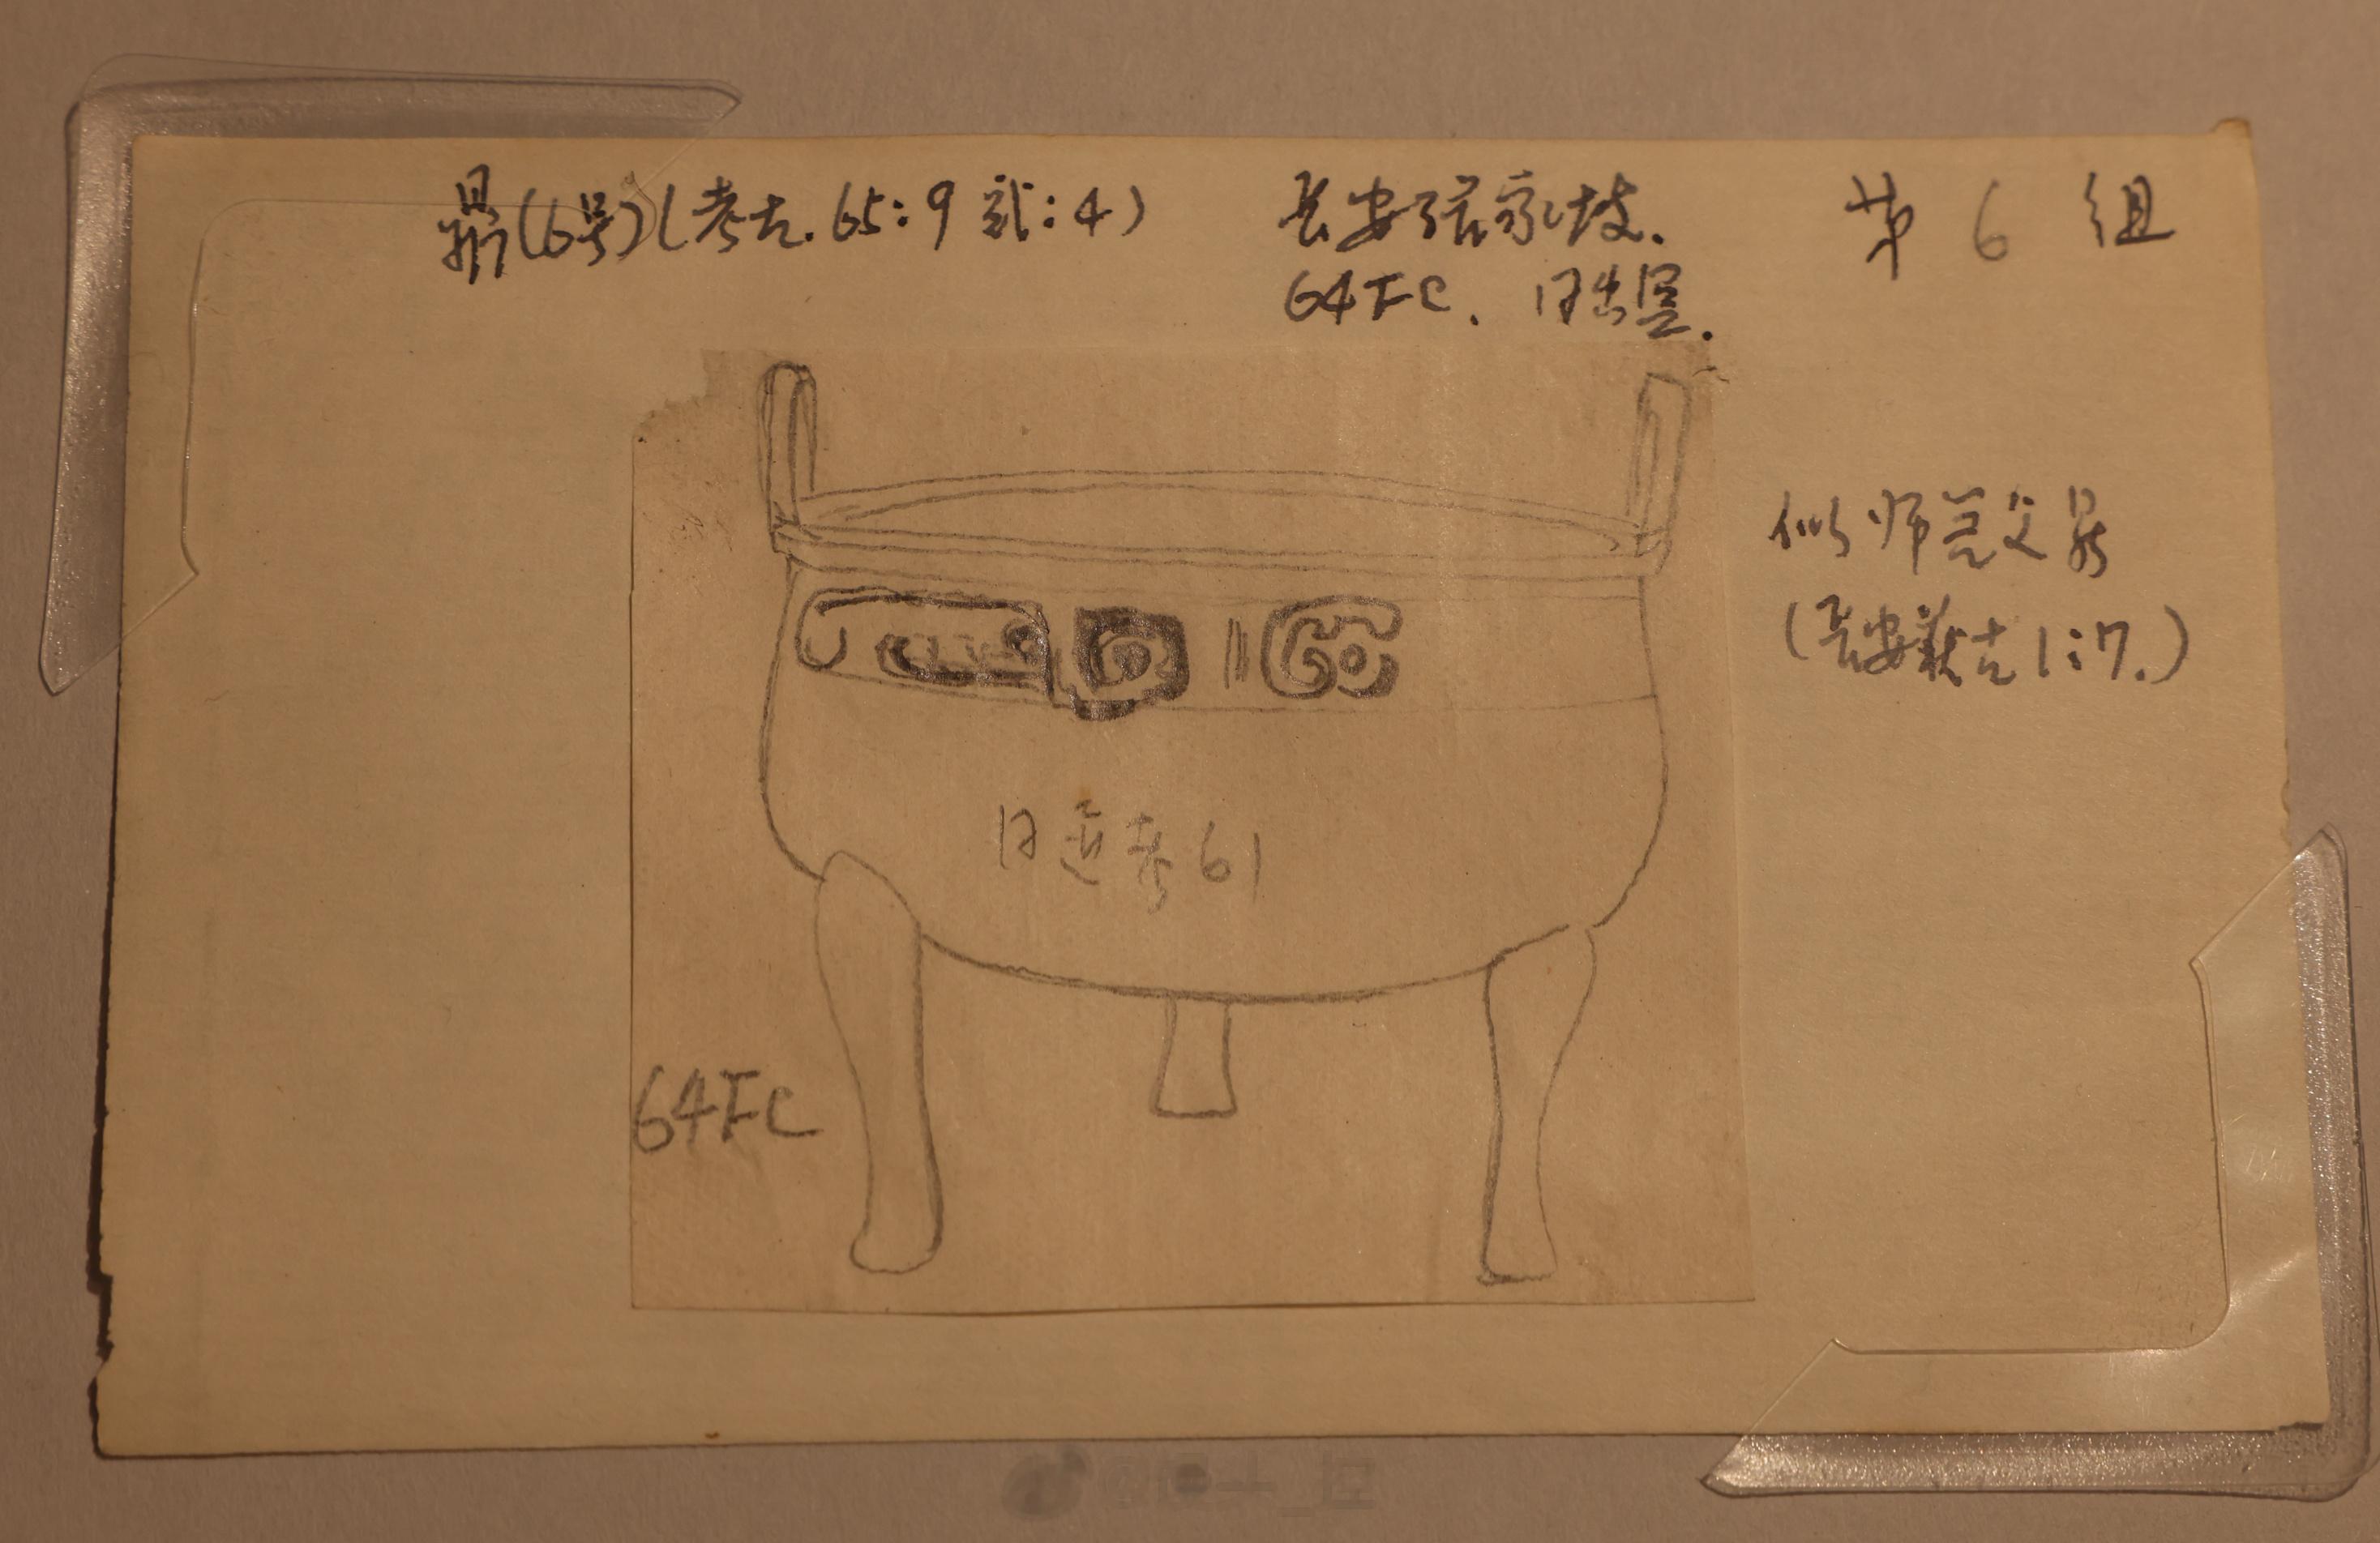 鼎(6号)(考古.65:9 弍:4)
长安张家坡.
64FC. 同出罍.
第 6 组
似师㝨父鼎
(长安获古1:7.)
同 考61
64FC